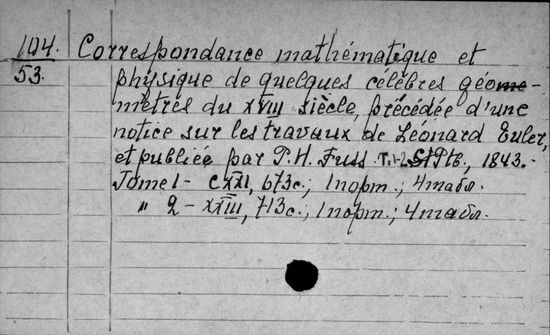 104. Correspondance mathématique et
53. physique de quelques célèbres géome-
mètres du XVIII siècle, précédée d'une
notice sur les travaux de Léonard Euler,
et publiée par P. H. Fuss. T. 1-2 StPtb., 1843.-
Tome 1 - CXXI, 673c.; 1 порт.; 4 табл.
" 2 - XXIII, 713c.; 1 порт.; 4 табл.